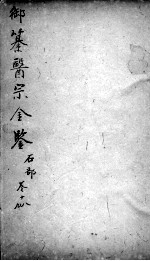 御纂醫宗金鑒
石部